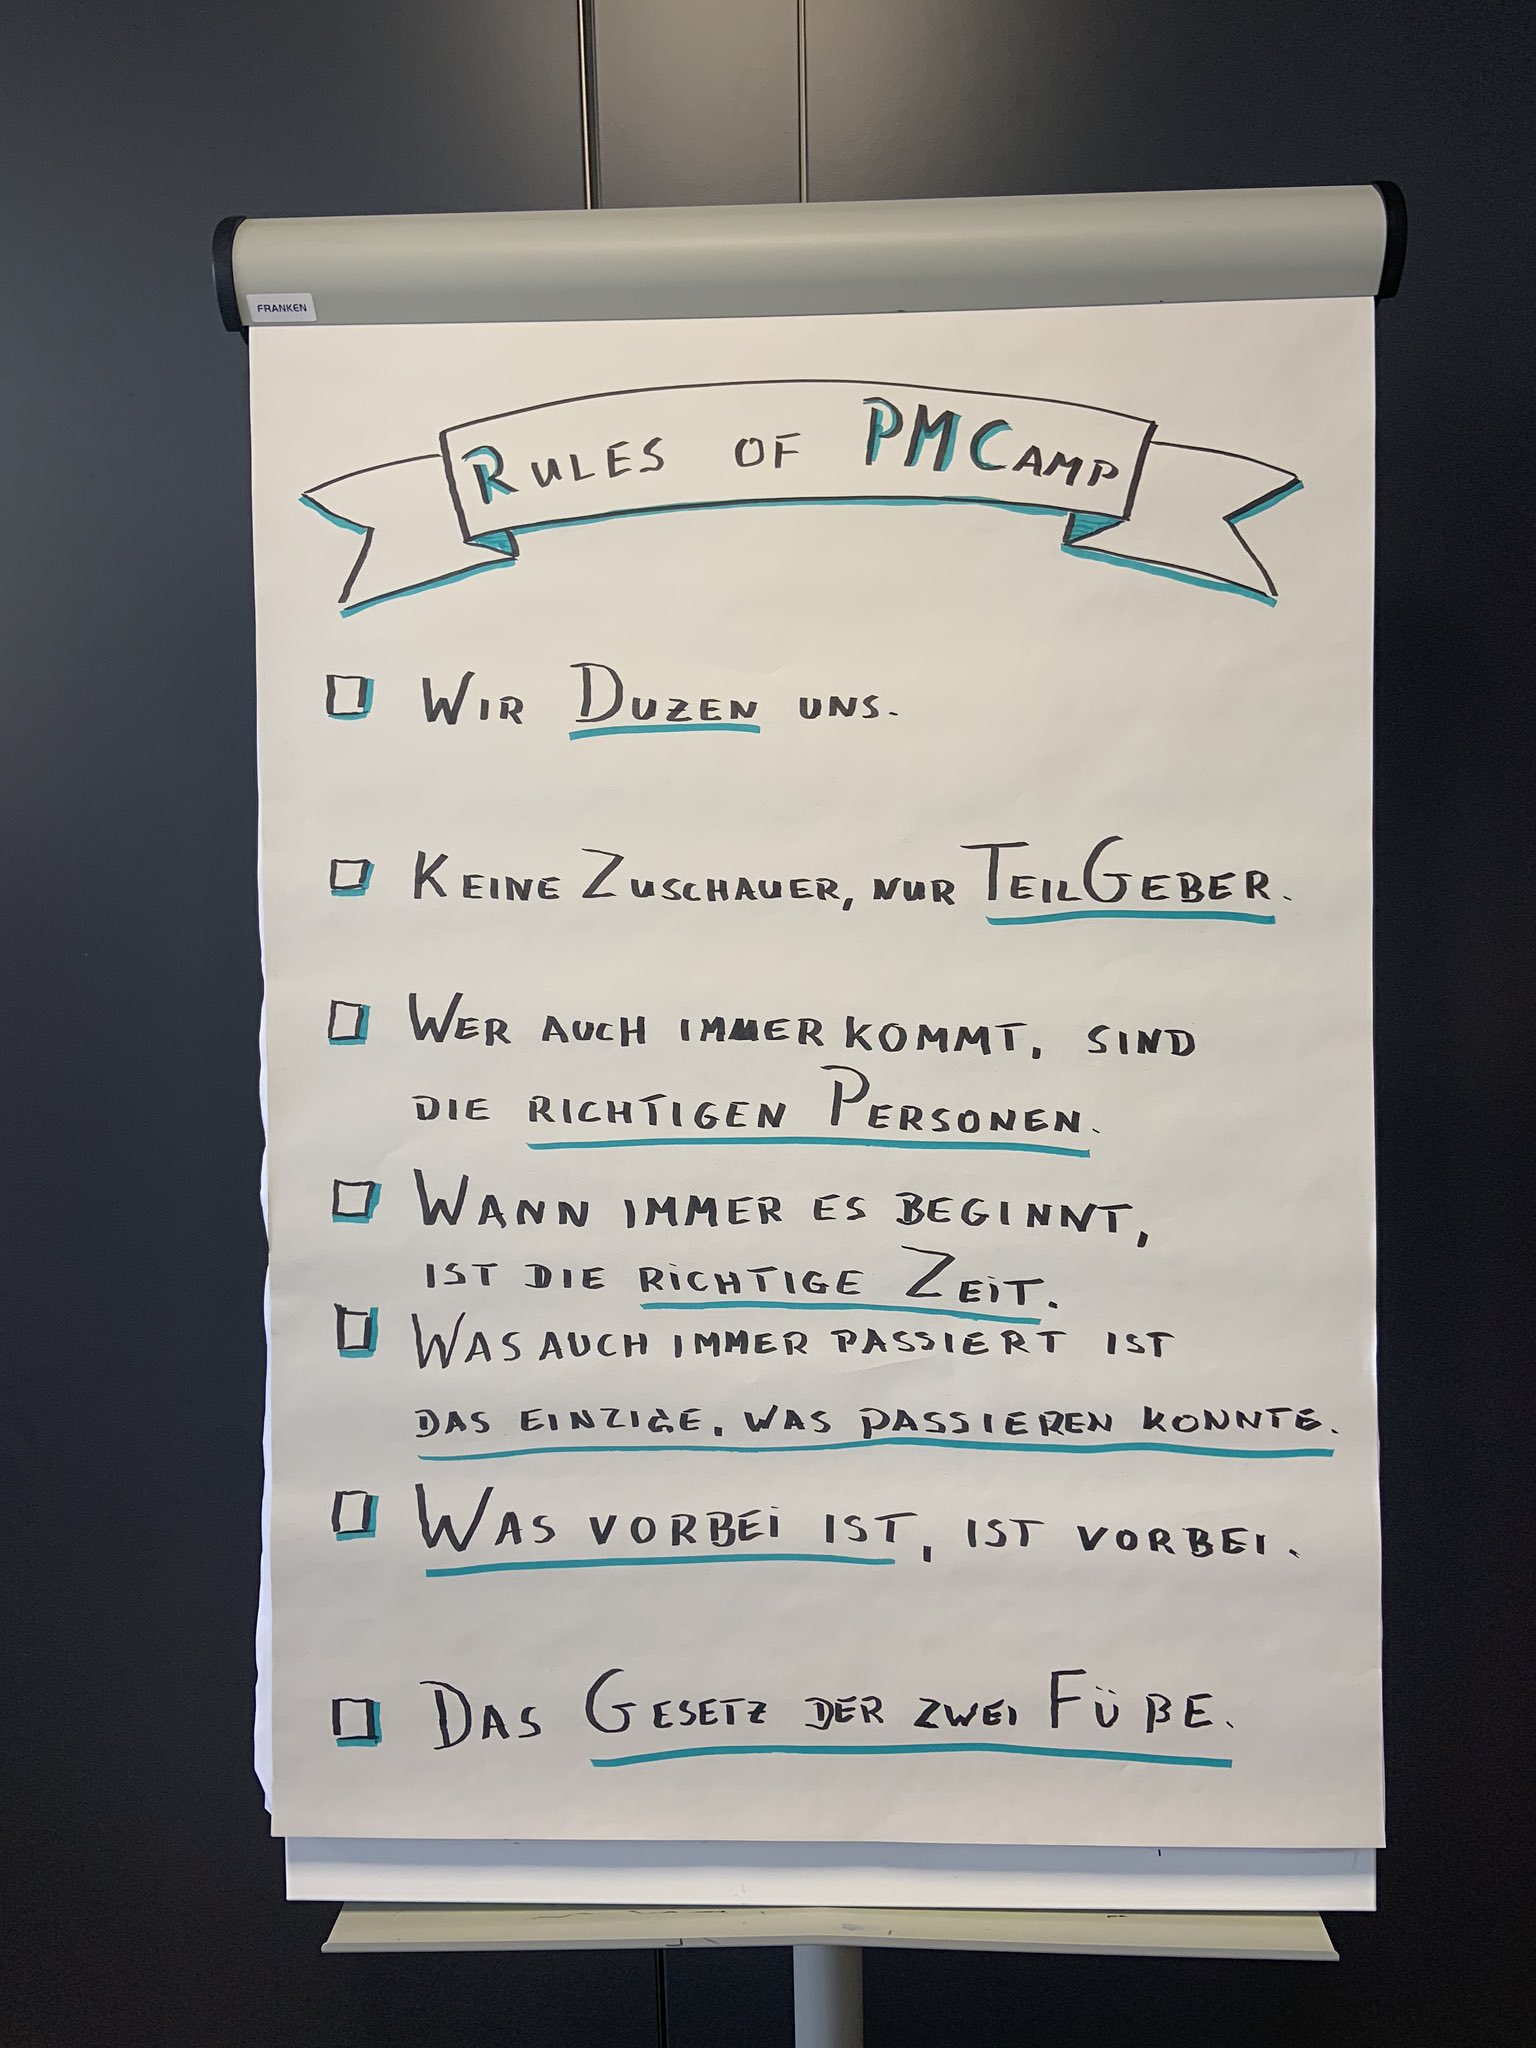 FRANKEN
RULES OF PMCAMP
WIR DUZEN UNS.
KEINE ZUSCHAUER, NUR TEILGEBER.
WER AUCH IMMER KOMMT, SIND
DIE RICHTIGEN PERSONEN.
WANN IMMER ES BEGINNT,
IST DIE RICHTIGE ZEIT.
WAS AUCH IMMER PASSIERT IST
DAS EINZIGE, WAS PASSIEREN KONNTE.
WAS VORBEI IST, IST VORBEI.
DAS GESETZ DER ZWEI FÜßE.